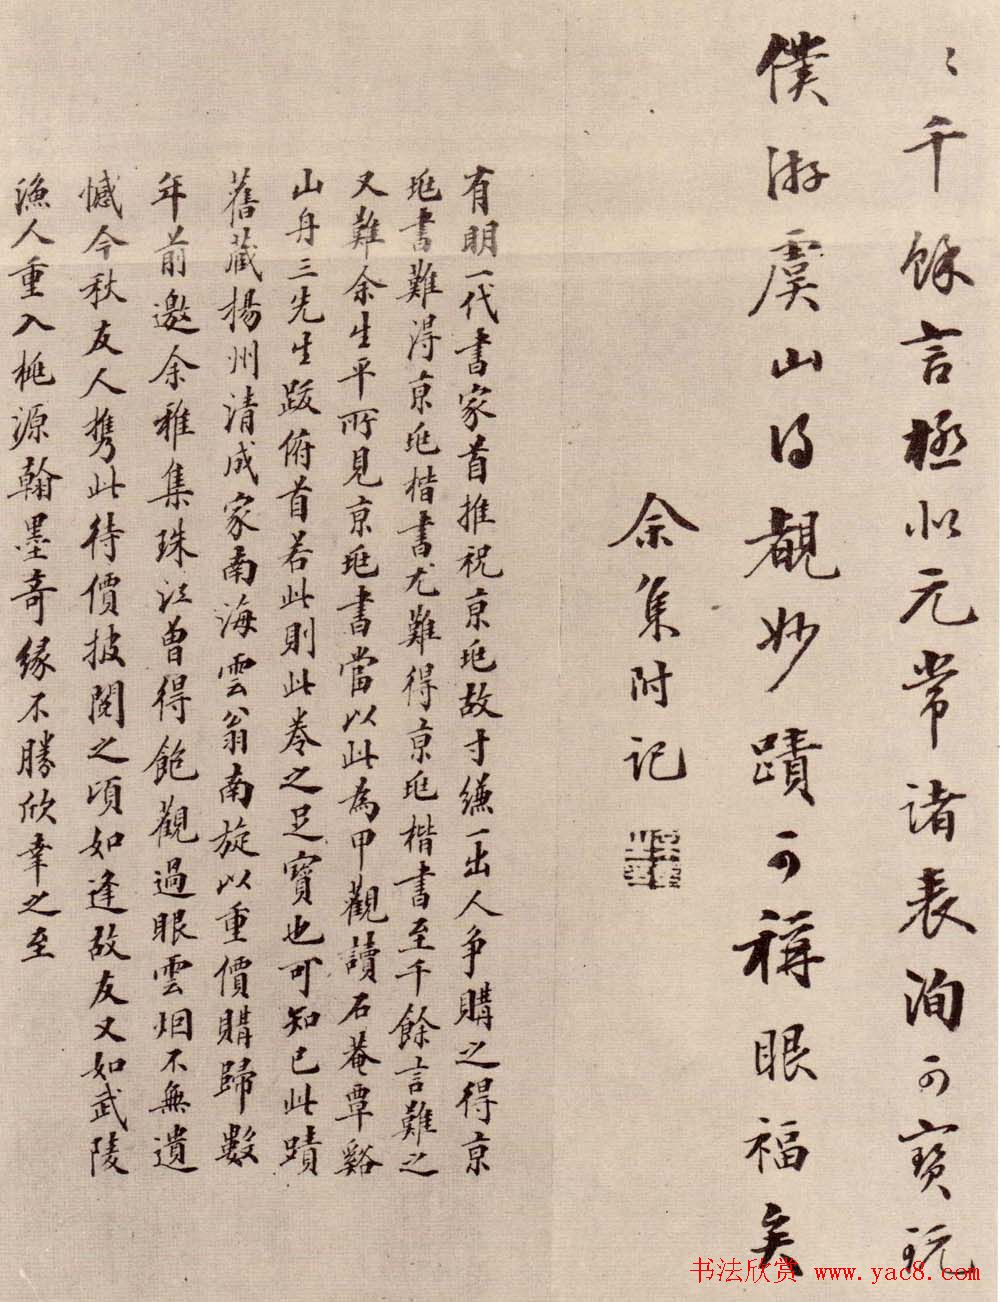 〻千餘言極似元常諸表洵可寶玩
僕游虞山得覩妙蹟可稱眼福矣
余集附記
有明一代書家首推祝京兆故寸縑一出人争購之得京
兆書難得京兆楷書尤難得京兆楷書至千餘言難之
又難余生平所見京兆書當以此為甲觀讀石菴覃谿
山舟三先生跋俯首若此則此卷之足寶也可知已此蹟
舊藏揚州清成家南海雲翁南旋以重價購歸數
年前邀余雅集珠江曾得飽觀過眼雲烟不無遺
憾今秋友人攜此待價披閱之頃如逢故友又如武陵
漁人重入桃源翰墨奇緣不勝欣幸之至
书法欣赏 www.yac8.com